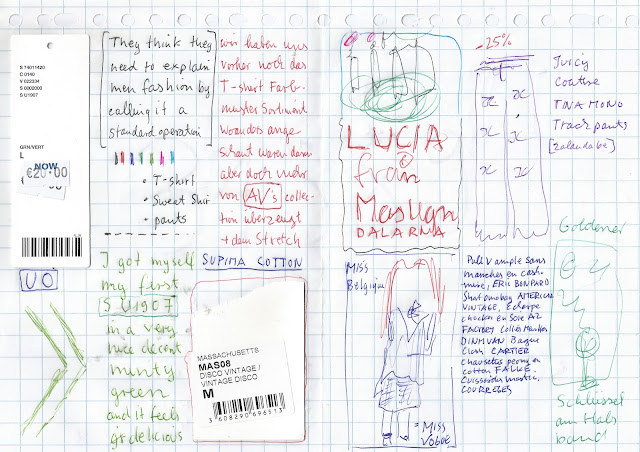 S 74011420
C 0140
V 022034
S 0002000
S U1907
GRN/VERT
L
NOW
€20.00
They think they
need to explain
men fashion by
calling it a
standard operation
• T-shirt
• Sweat Shirt
• pants
wir haben uns
vorher noch das
T-shirt Farb-
muster Sortiment
ange
schaut waren dann
aber doch mehr
von AV's collec-
tion überzeugt
+ dem Stretch
SUPIMA COTTON
UO
I got myself
my first
S U1907
in a very
nice decent
minty
green
and it feels
gr delicious
MASSACHUSETTS
MAS08
DISCO VINTAGE /
VINTAGE DISCO
M
3608290696513
LUCIA
från
Masugn
DALARNA
-25%
Juicy
Couture
TNA MONO
Track pants
[zalando.be]
MISS
Belgique
= MISS
VOGUE
Pull V ample sans
manches en cash-
mire, ERIC BOMPARD
Short AMERICAN
VINTAGE, Echarpe
en Soie A2
FACTORY Collier
DINH VAN Bague
Clash CARTIER
chaussettes peony en
cotton FALKE.
Cuissardes
COURREGES
Goldener
Schlüssel
am Hals
band